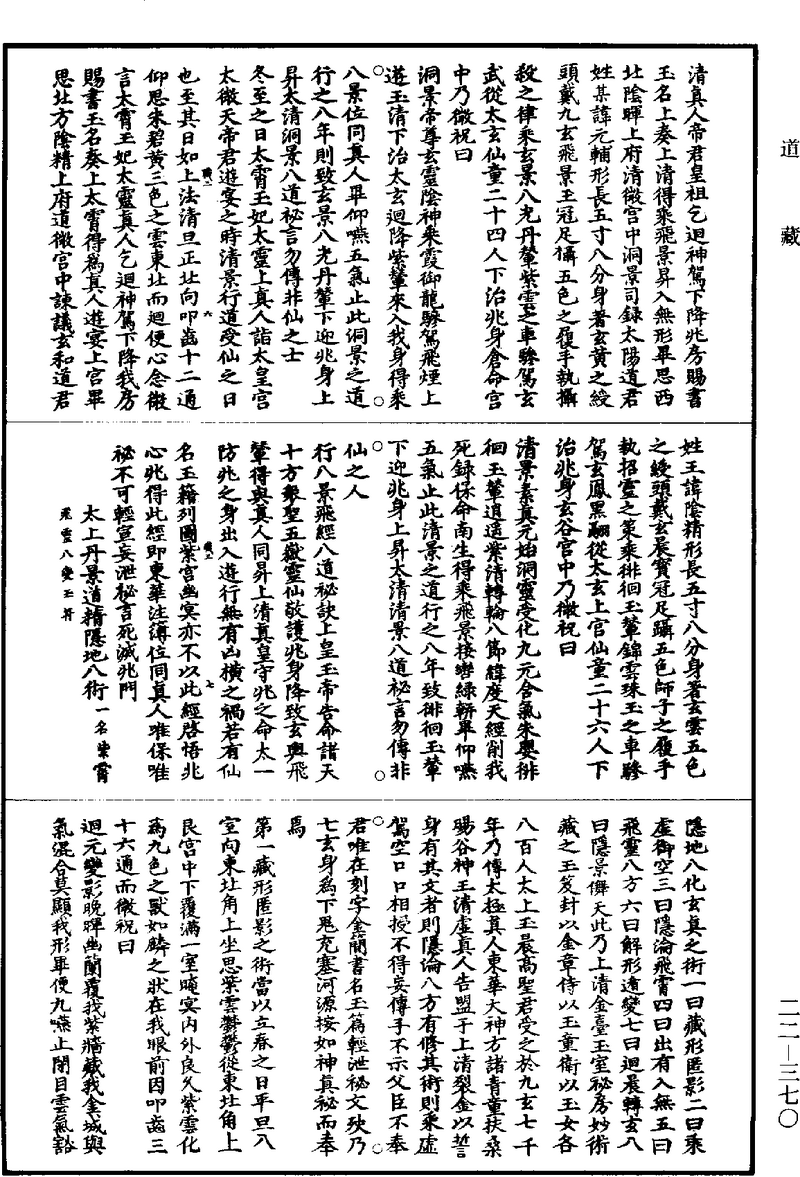 道藏
清真人帝君皇祖乞迴神駕下降兆房賜書
玉名上奏上清得乘飛景昇入無形畢思西
北陰暉上府清微宮中洞景司錄太陽道君
姓某諱元輔形長五寸八分身著玄黃之綬
頭戴九玄飛景玉冠足躡五色之履手執攝
殺之律乘玄景八光丹輦紫雲之車驂駕玄
武從太玄仙童二十四人下治兆身倉命宮
中乃微祝曰
洞景帝尊玄靈陰神乘霞御龍驂駕飛煙上
遊玉清下治太玄迴降紫輦來入我身得乘
八景位同真人畢仰嚥五氣止此洞景之道
行之八年則致玄景八光丹輦下迎兆身上
昇太清洞景八道祕言勿傳非仙之士
冬至之日太霄玉妃太靈上真人詣太皇宮
太微天帝君遊宴之時清景行道受仙之日
也至其日如上法清旦正北向叩齒十二通
仰思朱碧黃三色之雲東北而迴便心念微
言太霄玉妃太靈真人乞迴神駕下降我房
賜書玉名奏上太霄得為真人遊宴上宮畢
思北方陰精上府道微宮中諫議玄和道君
姓王諱陰精形長五寸八分身著玄雲五色
之綬頭戴玄晨寶冠足躡五色師子之履手
執招靈之策乘徘徊玉輦錦雲珠玉之車驂
駕玄鳳黑翮從太玄上宮仙童二十六人下
治兆身玄谷宮中乃微祝曰
清景素真元始洞靈受化九元含氣朱嬰徘
徊玉輦逍遙紫清轉輪八節緯度天經削我
死錄保命南生得乘飛景接轡綠軿畢仰嚥
五氣止此清景之道行之八年致徘徊玉輦
下迎兆身上昇太清清景八道祕言勿傳非
仙之人
行八景飛經八道祕訣上皇玉帝告命諸天
十方眾聖五嶽靈仙敬護兆身降致玄輿飛
輦得與真人同昇上清真皇守兆之命太一
防兆之身出入遊行無有凶橫之禍若有仙
名玉籍列圖紫宮幽冥亦不以此經啓悟兆
心兆得此經即東華注簿位同真人唯保唯
祕不可輕宣妄泄祕言死滅兆門
太上丹景道精隱地八術一名紫霄
飛靈八變玉符
隱地八化玄真之術一曰藏形匿影二曰乘
虛御空三曰隱淪飛霄四曰出有入無五曰
飛靈八方六曰解形遁變七曰迴晨轉玄八
曰隱景儛天此乃上清金臺玉室祕房妙術
藏之玉笈封以金章侍以玉童衛以玉女各
八百人太上玉晨高聖君受之於九玄七千
年乃傳太極真人東華大神方諸青童扶桑
暘谷神王清虛真人告盟于上清裂金以誓
身有其文者則隱淪八方有修其術則乘虛
駕空口口相授不得妄傳子不示父臣不奉
君唯在刻字金簡書名玉篇輕泄祕文殃乃
七玄身為下鬼充塞河源按如神真祕而奉
焉
第一藏形匿影之術當以立春之日平旦入
室向東北角上坐思紫雲鬱鬱從東北角上
艮宮中下覆滿一室晻冥內外良久紫雲化
為九色之獸如麟之狀在我眼前因叩齒三
十六通而微祝曰
迴元變影晚暉幽蘭覆我紫牆藏我金城與
氣混合莫顯我形畢便九嚥止閉目雲氣豁
二二—三七〇